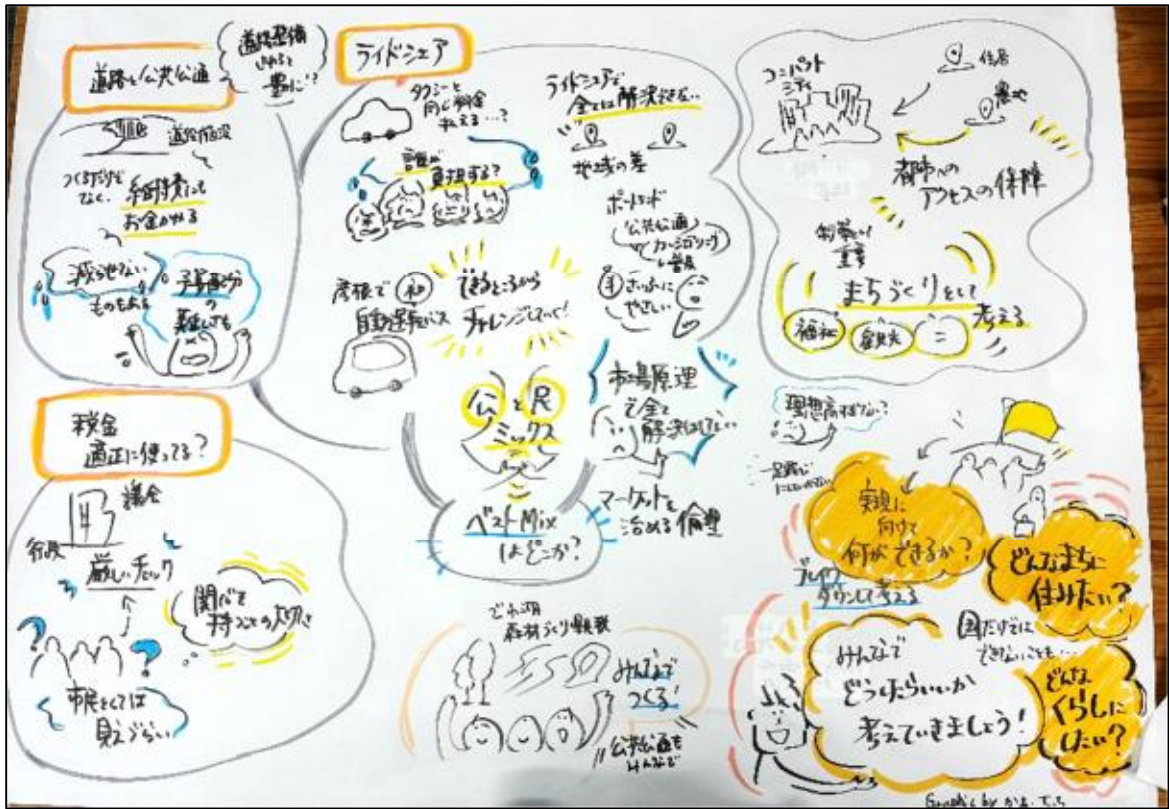 道路と公共交通
道路整備
すると
豊かに!?
道路施設
つくるだけで
なく、維持費にも
お金かかる
減らせない
ものもある
予算配分
の
難しさも
ライドシェア
タクシーと
同じ料金
払える…?
誰が
負担する?
ライドシェアで
全ては解決できない…
地域の差
ポートランド
公共交通
カーシェアリング
普及
さいふに
やさしい
彦根で 初
自動運転バス
できるところから
チャレンジしていく!
公と民
ミックス
ベストMix
はどこか?
市場原理
で全て
解決はしない
マーケットを
治める倫理
コンパクト
シティ
住居
農地
都市への
アクセスの保障
重要
まちづくりとして
考える
福祉
税金
適正に使ってる?
議会
行政
厳しいチェック
関心を
持つことの大切さ
市民としては
見えづらい
びわ湖
森林づくり県民税
みんなで
つくる!
公共交通も
みんなで
理想高すぎない?
実現に
向けて
何ができるか?
ブレイク
ダウンして考える
どんなまちに
住みたい?
国だけでは
できないことも…
みんなで
どうしたらいいか
考えていきましょう!
どんな
くらしに
したい?
Graphic by